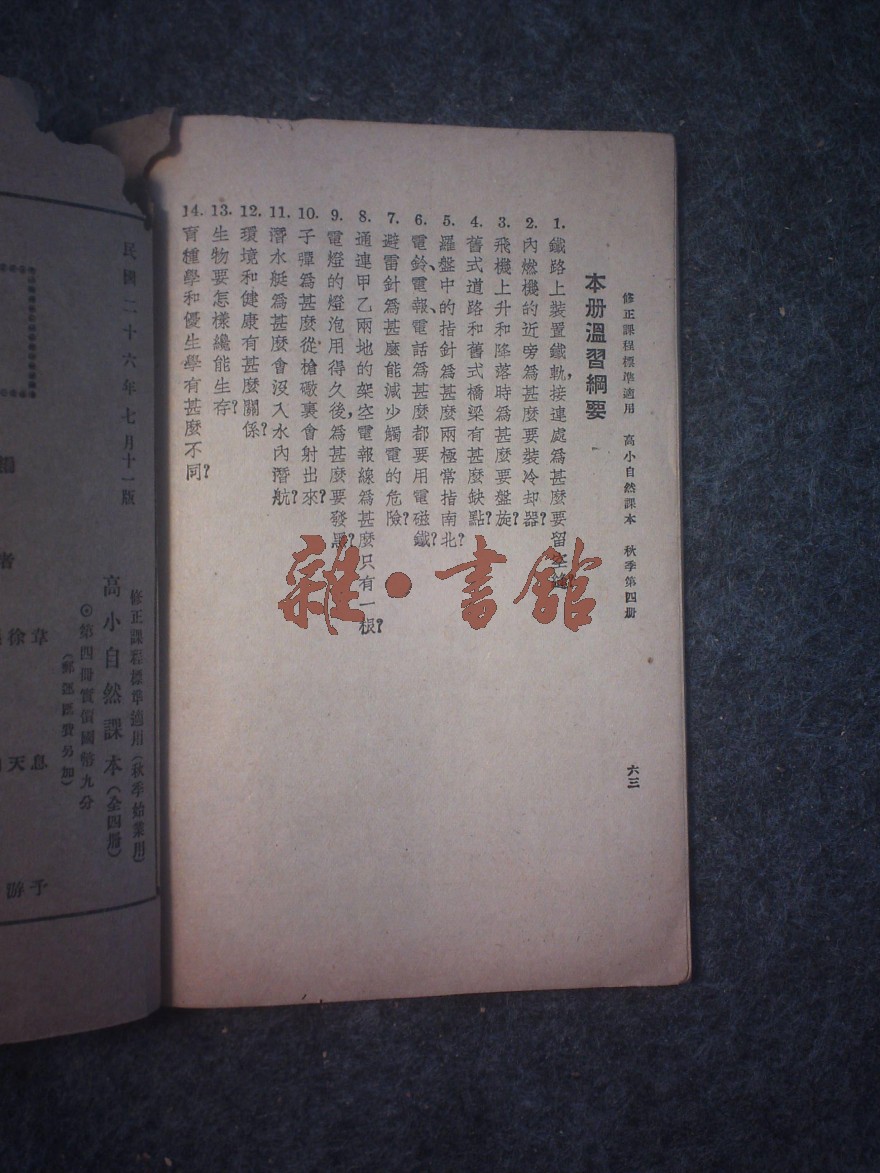 修正課程標準適用 高小自然課本 秋季第四册
六三
本册溫習綱要
1. 鐵路上裝置鐵軌，接連處爲甚麼要留空縫？
2. 內燃機的近旁爲甚麼要裝冷却器？
3. 飛機上升和降落時爲甚麼要盤旋？
4. 舊式道路和舊式橋梁有甚麼缺點？
5. 羅盤中的指針爲甚麼兩極常指南北？
6. 電鈴、電報、電話爲甚麼都要用電磁鐵？
7. 避雷針爲甚麼能減少觸電的危險？
8. 通連甲乙兩地的架空電報線爲甚麼只有一根？
9. 電燈的燈泡用得久後，爲甚麼要發黑？
10. 子彈爲甚麼從槍礮裏會射出來？
11. 潛水艇爲甚麼會沒入水內潛航？
12. 環境和健康有甚麼關係？
13. 生物要怎樣纔能生存？
14. 育種學和優生學有甚麼不同？
雜·書館
民國二十六年七月十一版
修正課程標準適用（秋季始業用）
高小自然課本（全四册）
⊙第四冊實價國幣九分
（郵運匯費另加）
者
徐 韋
天 息
游 予